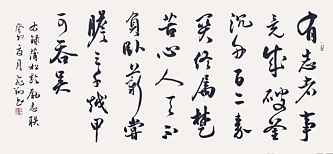 有志者事
竟成破釜
沉舟百二秦
关终属楚
苦心人天不
负卧薪尝
胆三千越甲
可吞吴
右录蒲松龄励志联